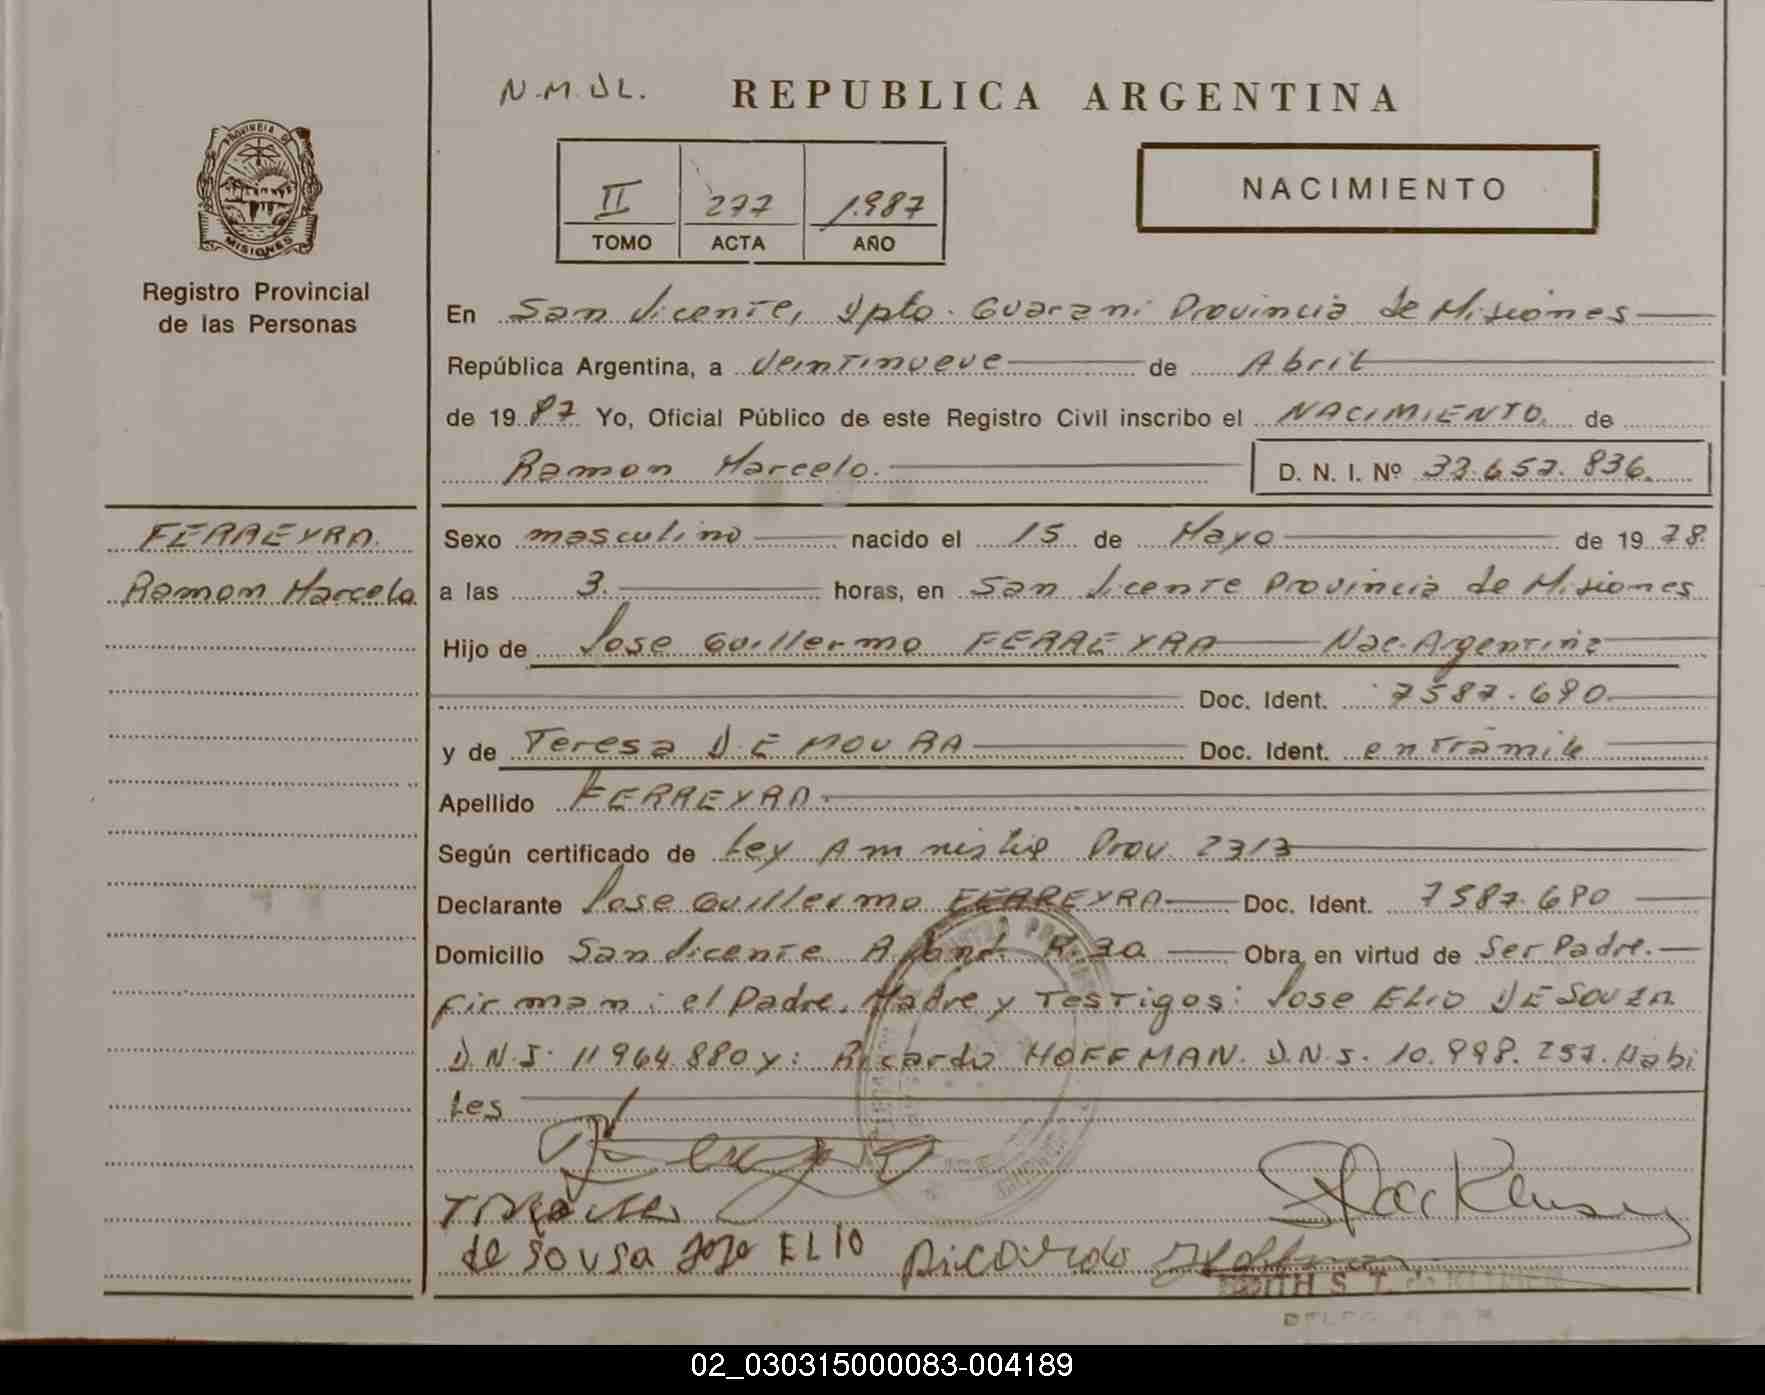 N.M.DL. REPUBLICA ARGENTINA
PROVINCIA DE
MISIONES
Registro Provincial
de las Personas
II 277 1.987
TOMO ACTA AÑO
NACIMIENTO
En San Vicente, Dpto. Guarani Provincia de Misiones
República Argentina, a Veintinueve de Abril
de 19 87 Yo, Oficial Público de este Registro Civil inscribo el NACIMIENTO. de
Ramon Marcelo. D. N. I. Nº 33.657.836.
FERREYRA.
Ramon Marcelo
Sexo masculino nacido el 15 de Mayo de 19 78.
a las 3. horas, en San Vicente Provincia de Misiones
Hijo de Jose Guillermo FERREYRA Nac. Argentina
Doc. Ident. 7587.690.
y de Teresa DE MOURA Doc. Ident. en tramite
Apellido FERREYRA.
Según certificado de Ley Amnistia Prov. 2313
Declarante Jose Guillermo FERREYRA Doc. Ident. 7587.690
Domicilio San Vicente A. R.30 Obra en virtud de Ser Padre.
Firman: el Padre, Madre y Testigos: Jose ELIO DE SOUZA
D.N.I. 11964.880 y: Ricardo HOFFMAN. D.N.I. 10.998.257. Habi
les
de Sousa Jose ELIO Ricardo
02_030315000083-004189